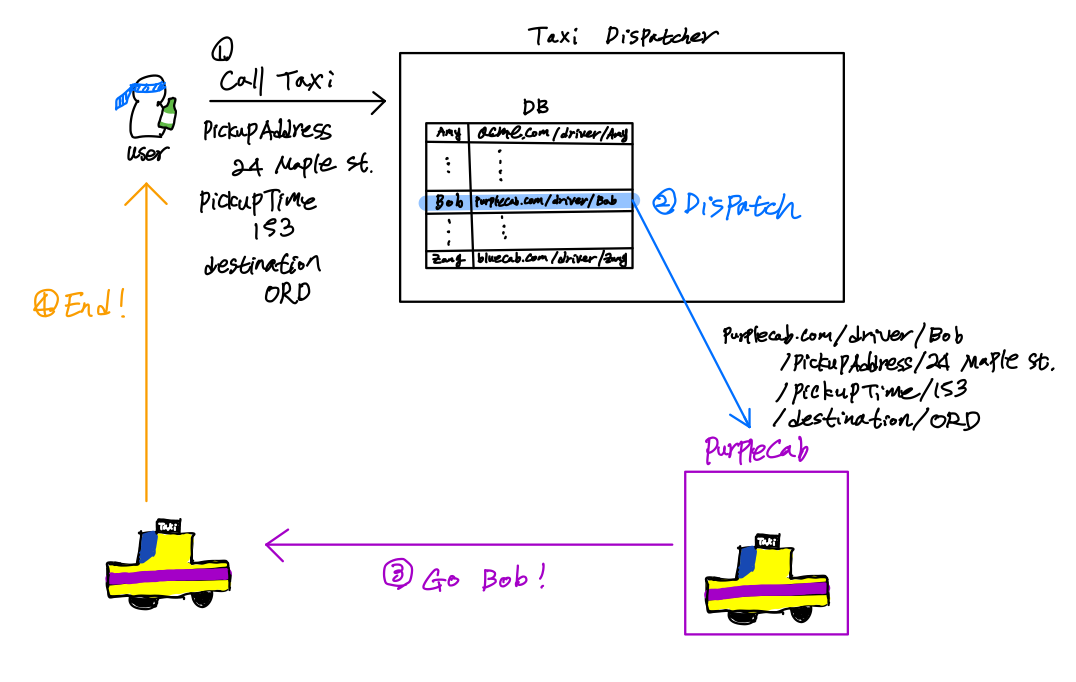 Taxi Dispatcher
①
Call Taxi
PickupAddress
24 Maple St.
PickupTime
153
destination
ORD
user
DB
Any acme.com/driver/Any
Bob Purplecab.com/driver/Bob
Zang bluecab.com/driver/Zang
② Dispatch
④ End!
Purplecab.com/driver/Bob
/PickupAddress/24 Maple St.
/PickupTime/153
/destination/ORD
PurpleCab
TAXI
TAXI
③ Go Bob!